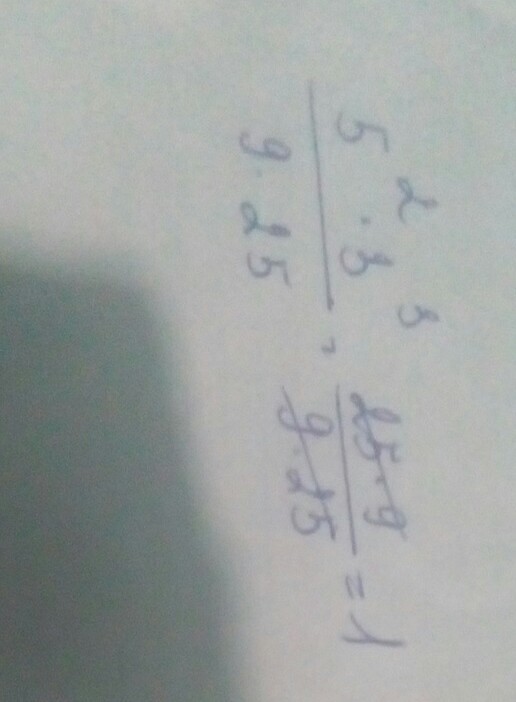 5² · 3³ / 9 · 25 = 25 · 9 / 9 · 25 = 1